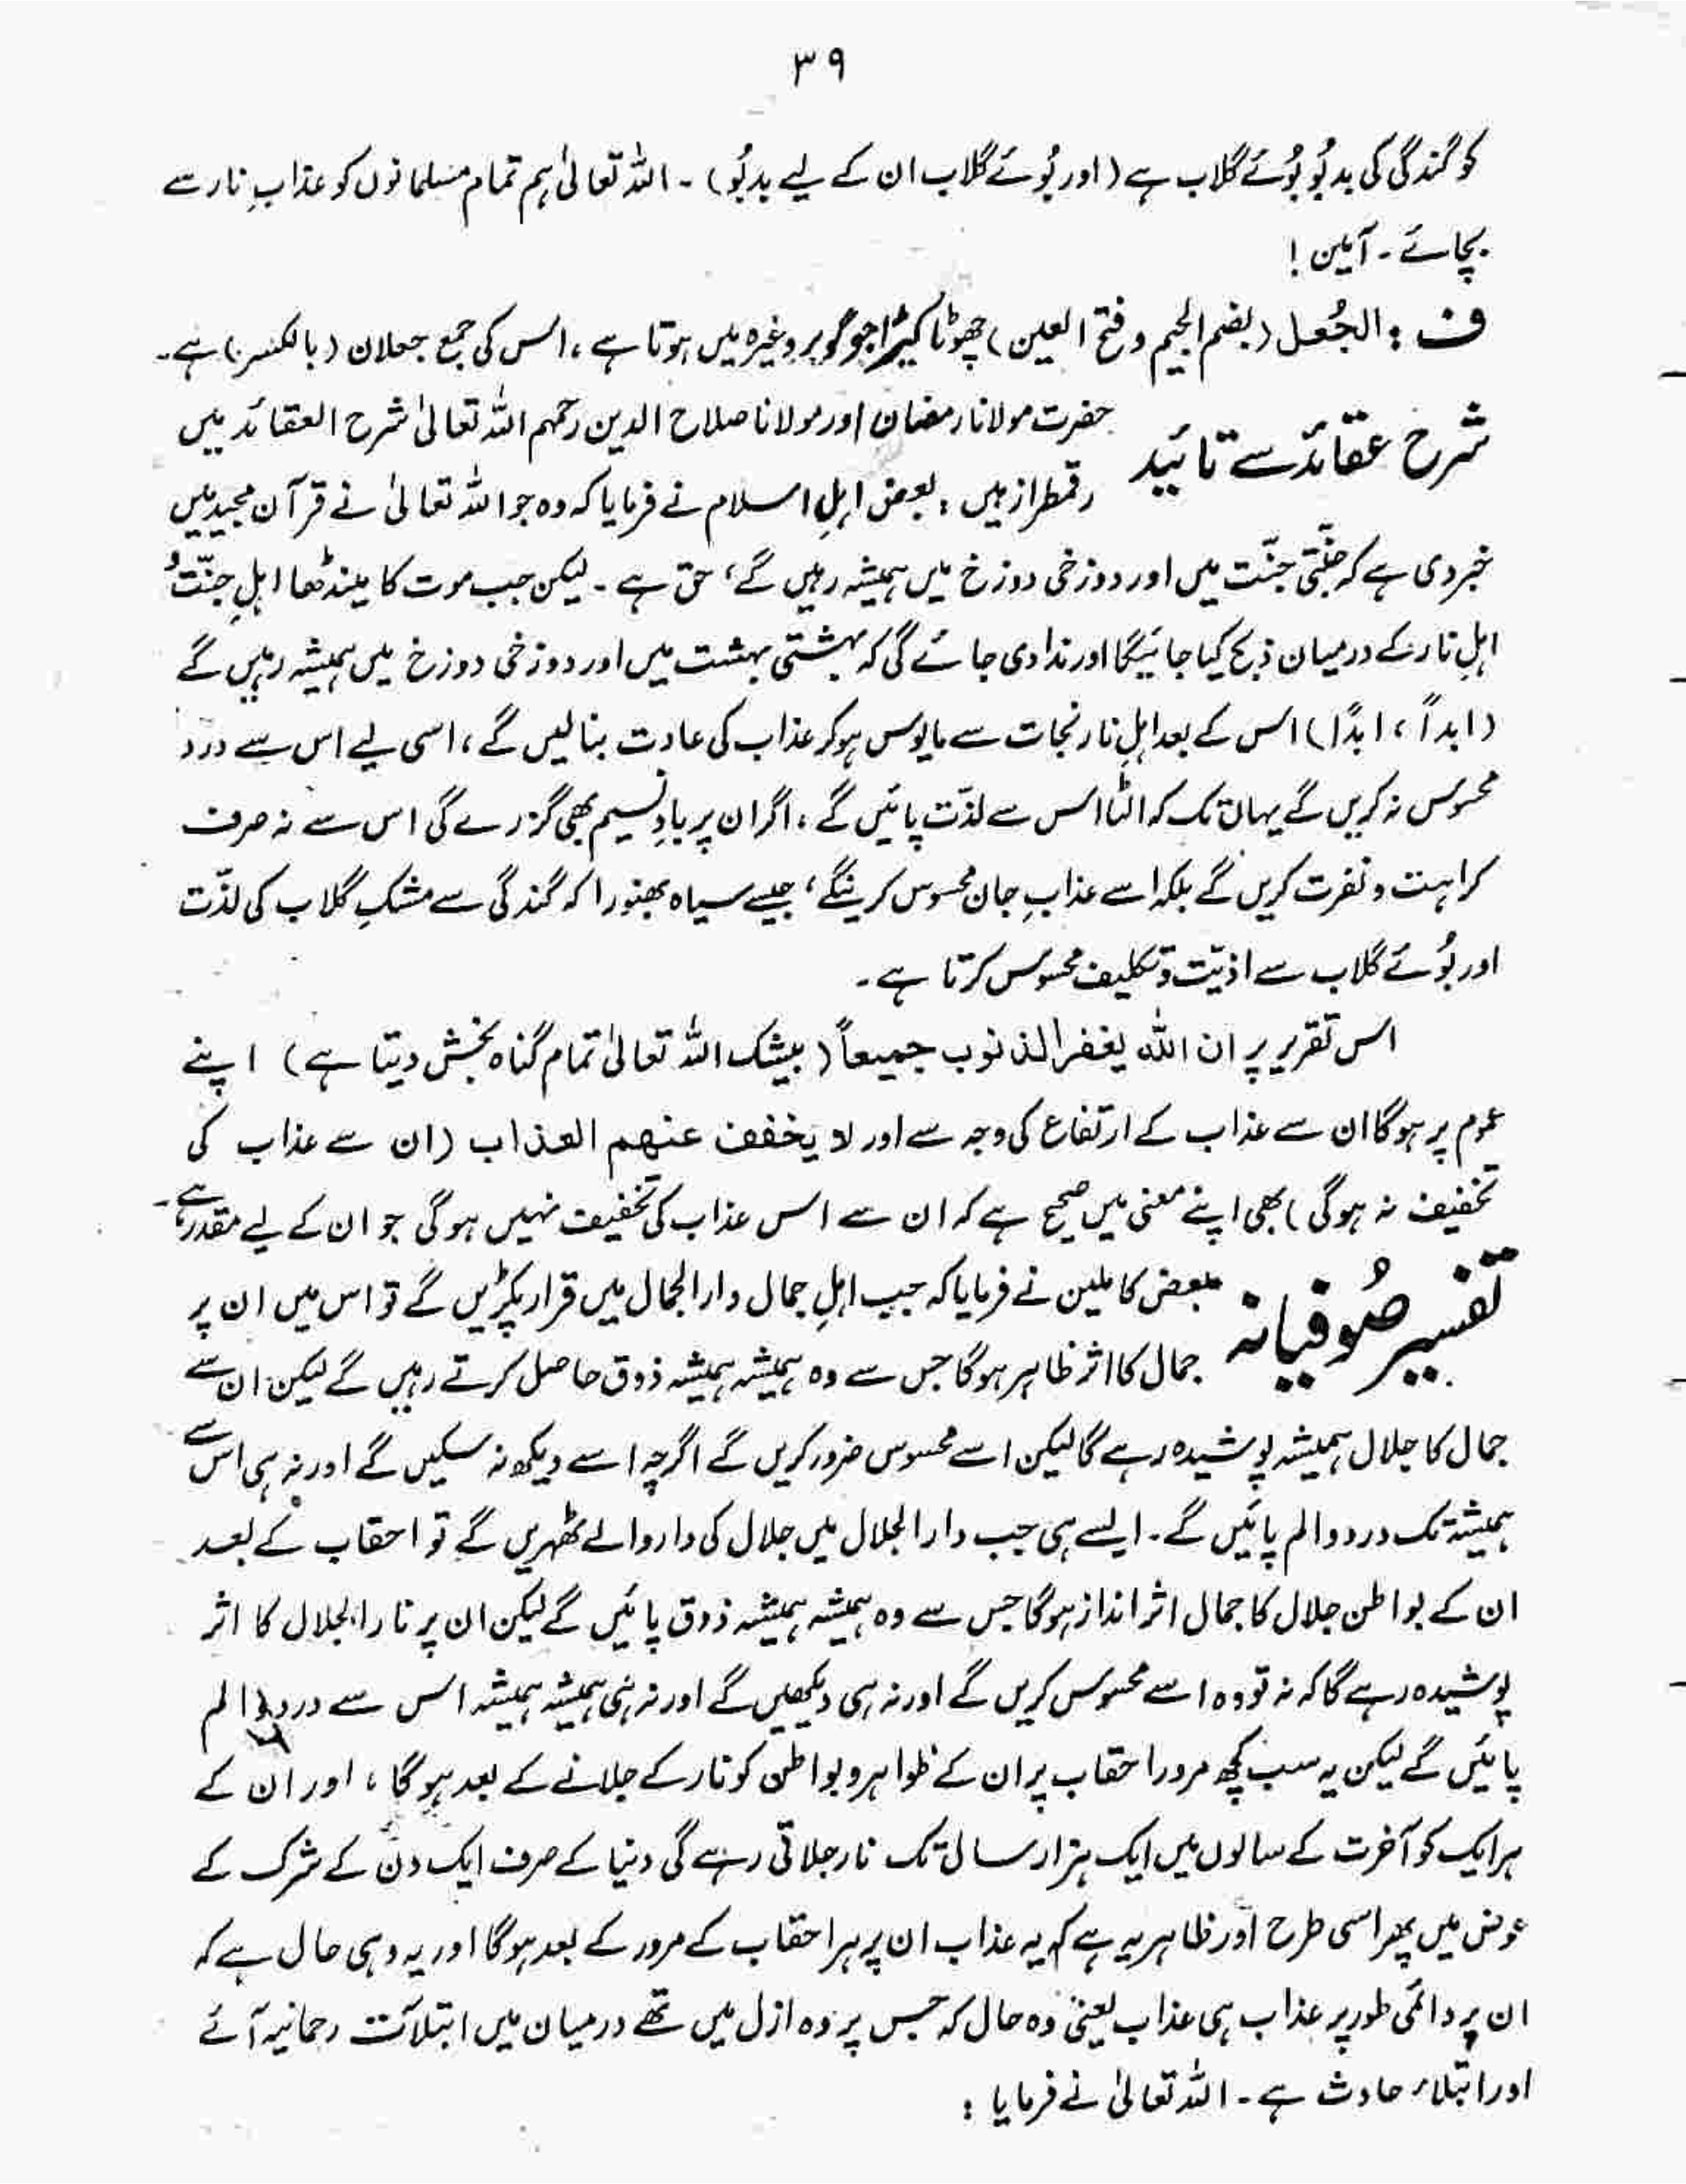 ۳۹
کو گندگی کی بدبُو بُوئے گلاب ہے (اور بُوئے گلاب ان کے لیے بدبُو) ۔ اللہ تعالیٰ ہم تمام مسلمانوں کو عذابِ نار سے
بچائے ۔ آمین !
ف : الجُعل (بضم الجیم و فتح العین) چھوٹا کیڑا جو گوبر وغیرہ میں ہوتا ہے ، اس کی جمع جعلان (بالکسر) ہے ۔
شرح عقائد سے تائید حضرت مولانا رمضان اور مولانا صلاح الدین رحمہم اللہ تعالیٰ شرح العقائد میں
رقمطراز ہیں : بعض اہلِ اسلام نے فرمایا کہ وہ جو اللہ تعالیٰ نے قرآن مجید میں
خبر دی ہے کہ جنّتی جنّت میں اور دوزخی دوزخ میں ہمیشہ رہیں گے ، حق ہے ۔ لیکن جب موت کا مینڈھا اہلِ جنّت و
اہلِ نار کے درمیان ذبح کیا جائیگا اور ندا دی جائے گی کہ بہشتی بہشت میں اور دوزخی دوزخ میں ہمیشہ رہیں گے
(ابداً ، ابدًا) اس کے بعد اہلِ نار نجات سے مایوس ہو کر عذاب کی عادت بنا لیں گے ، اسی لیے اس سے درد
محسوس نہ کریں گے یہاں تک کہ الٹا اس سے لذّت پائیں گے ، اگر ان پر بادِ نسیم بھی گزرے گی اس سے نہ صرف
کراہت و نفرت کریں گے بلکہ اسے عذابِ جان محسوس کرینگے ، جیسے سیاہ بھنورا کہ گندگی سے مشکِ گلاب کی لذّت
اور بُوئے گلاب سے اذیّت و تکلیف محسوس کرتا ہے ۔
اس تقریر پر ان اللہ یغفر الذنوب جمیعاً (بیشک اللہ تعالیٰ تمام گناہ بخش دیتا ہے) اپنے
عموم پر ہوگا ان سے عذاب کے ارتفاع کی وجہ سے اور لا یخفف عنهم العذاب (ان سے عذاب کی
تخفیف نہ ہوگی) بھی اپنے معنی میں صحیح ہے کہ ان سے اس عذاب کی تخفیف نہیں ہوگی جو ان کے لیے مقدر ہے ۔
تفسیر صُوفیانہ بعض کاملین نے فرمایا کہ جب اہلِ جمال دار الجمال میں قرار پکڑیں گے تو اس میں ان پر
جمال کا اثر ظاہر ہوگا جس سے وہ ہمیشہ ہمیشہ ذوق حاصل کرتے رہیں گے لیکن ان سے
جمال کا جلال ہمیشہ پوشیدہ رہے گا لیکن اسے محسوس ضرور کریں گے اگرچہ اسے دیکھ نہ سکیں گے اور نہ ہی اس سے
ہمیشہ تک درد و الم پائیں گے ۔ ایسے ہی جب دار الجلال میں جلال کی دار والے ٹھہریں گے تو احقاب کے بعد
ان کے بواطن جلال کا جمال اثر انداز ہوگا جس سے وہ ہمیشہ ہمیشہ ذوق پائیں گے لیکن ان پر نار الجلال کا اثر
پوشیدہ رہے گا کہ نہ تو وہ اسے محسوس کریں گے اور نہ ہی دیکھیں گے اور نہ ہی ہمیشہ ہمیشہ اس سے درد و الم
پائیں گے لیکن یہ سب کچھ مرور احقاب پر ان کے ظواہر و بواطن کو نار کے جلانے کے بعد ہوگا ، اور ان کے
ہر ایک کو آخرت کے سالوں میں ایک ہزار سال تک نار جلاتی رہے گی دنیا کے صرف ایک دن کے شرک کے
عوض میں پھر اسی طرح اور ظاہر یہ ہے کہ یہ عذاب ان پر ہر احقاب کے مرور کے بعد ہوگا اور یہ وہی حال ہے کہ
ان پر دائمی طور پر عذاب ہی عذاب یعنی وہ حال کہ جس پر وہ ازل میں تھے درمیان میں ابتلآت رحمانیہ آئے
اور ابتلاء حادث ہے ۔ اللہ تعالیٰ نے فرمایا :